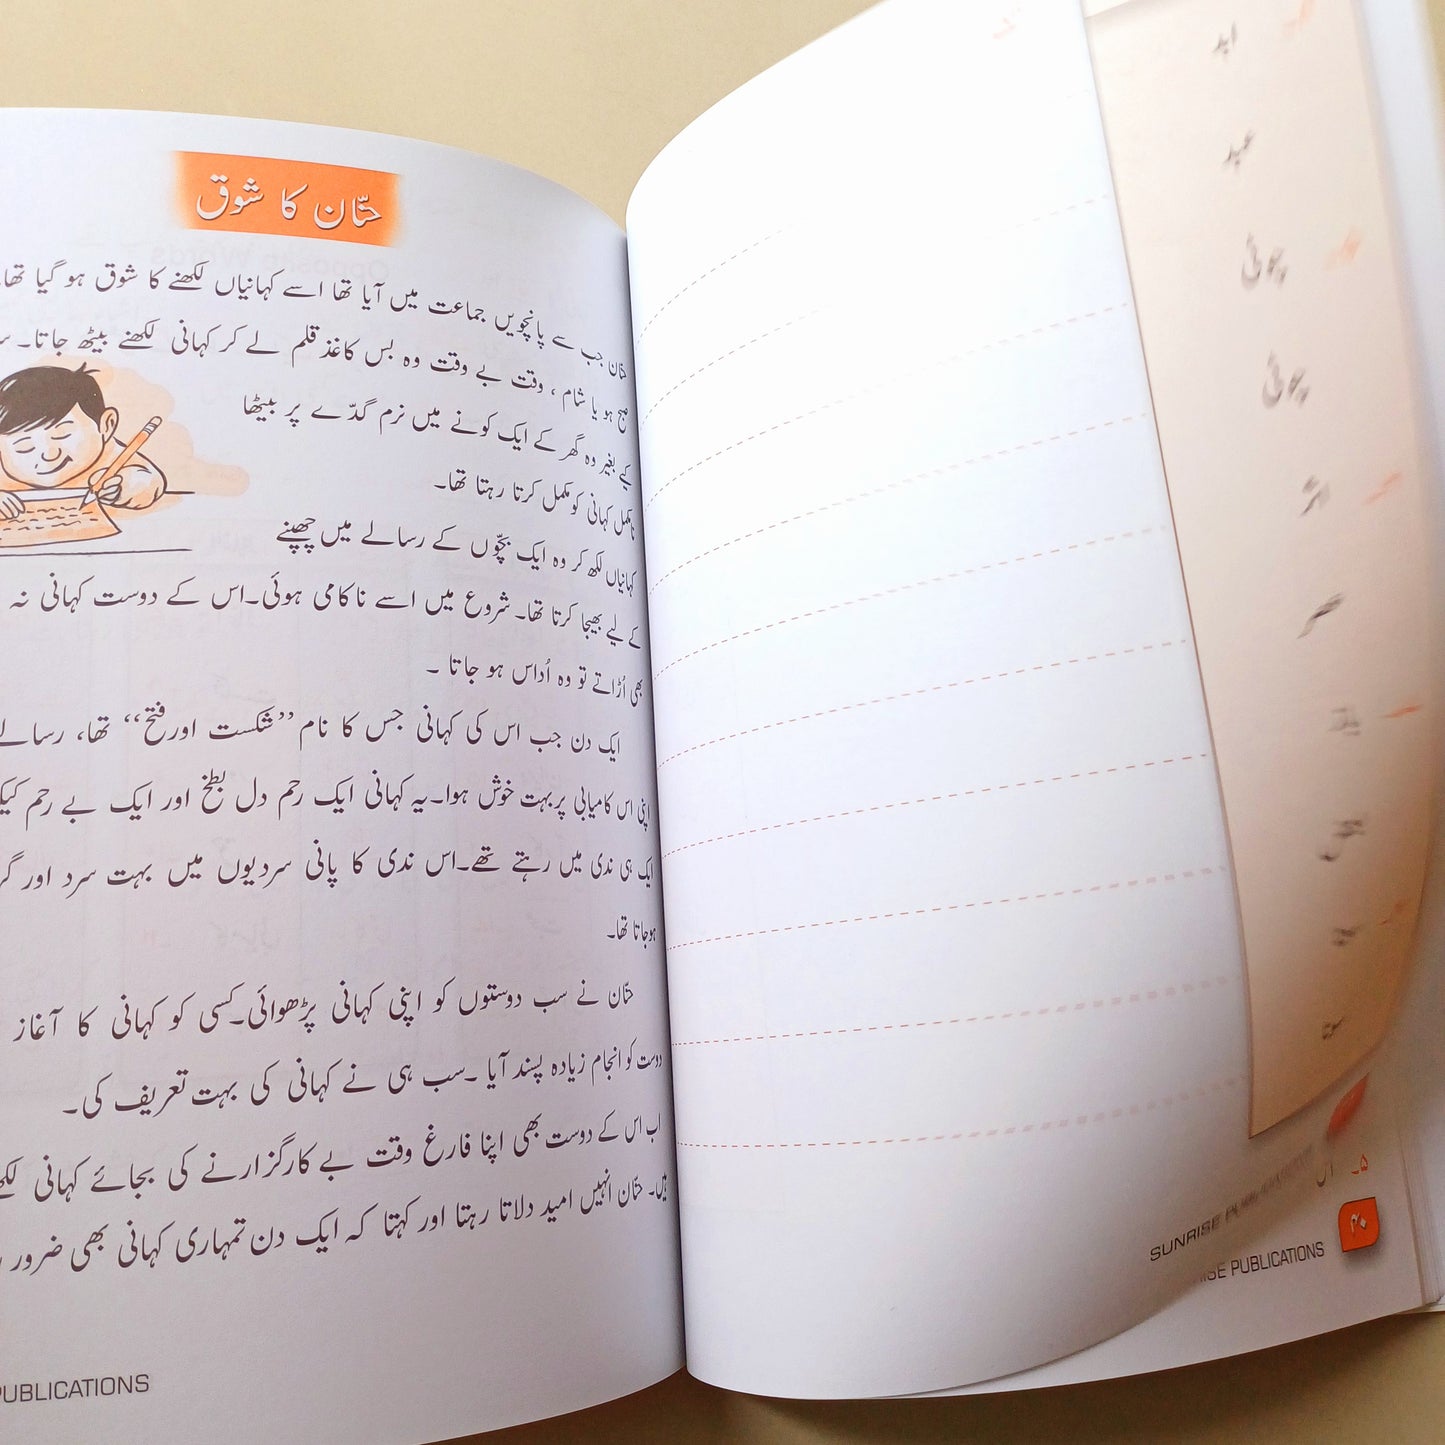 حنّان کا شوق
حنّان جب سے پانچویں جماعت میں آیا تھا اسے کہانیاں لکھنے کا شوق ہو گیا تھا۔
صبح ہو یا شام، وقت بے وقت وہ بس کاغذ قلم لے کر کہانی لکھنے بیٹھ جاتا۔
کے بغیر وہ گھر کے ایک کونے میں نرم گدّے پر بیٹھا
نامکمل کہانی کو مکمل کرتا رہتا تھا۔
کہانیاں لکھ کر وہ ایک بچّوں کے رسالے میں چھپنے
کے لیے بھیجا کرتا تھا۔ شروع میں اسے ناکامی ہوئی۔اس کے دوست کہانی نہ
بھی اُڑاتے تو وہ اُداس ہو جاتا ۔
ایک دن جب اس کی کہانی جس کا نام ”شکست اور فتح“ تھا، رسالے
اپنی اس کامیابی پر بہت خوش ہوا۔یہ کہانی ایک رحم دل بطخ اور ایک بے رحم
ایک ہی ندی میں رہتے تھے۔اس ندی کا پانی سردیوں میں بہت سرد اور
ہوجاتا تھا۔
حنّان نے سب دوستوں کو اپنی کہانی پڑھوائی۔کسی کو کہانی کا آغاز
دوست کو انجام زیادہ پسند آیا ۔سب ہی نے کہانی کی بہت تعریف کی۔
اب اس کے دوست بھی اپنا فارغ وقت بے کار گزارنے کی بجائے کہانی
ہیں۔ حنّان انہیں امید دلاتا رہتا اور کہتا کہ ایک دن تمہاری کہانی بھی ضرور
PUBLICATIONS
عید
چوٹی
چوٹی
۵۔ اس
SUNRISE
PUBLICATIONS
۴۰